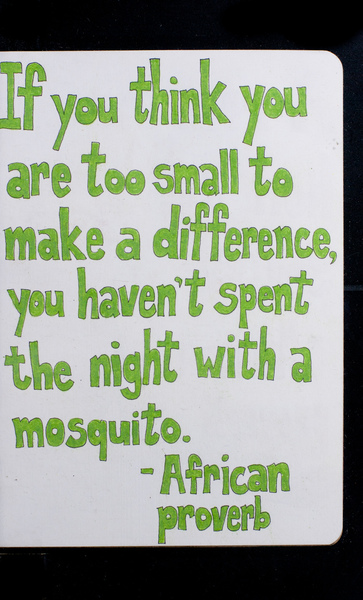 If you think you
are too small to
make a difference,
you haven't spent
the night with a
mosquito.
-African
proverb